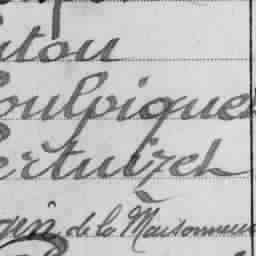 itou
oulpiquet
ertuizel
gin de la Maisonneuve